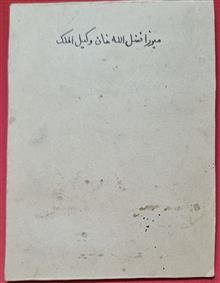 میرزا فضل الله خان وکیل الملک